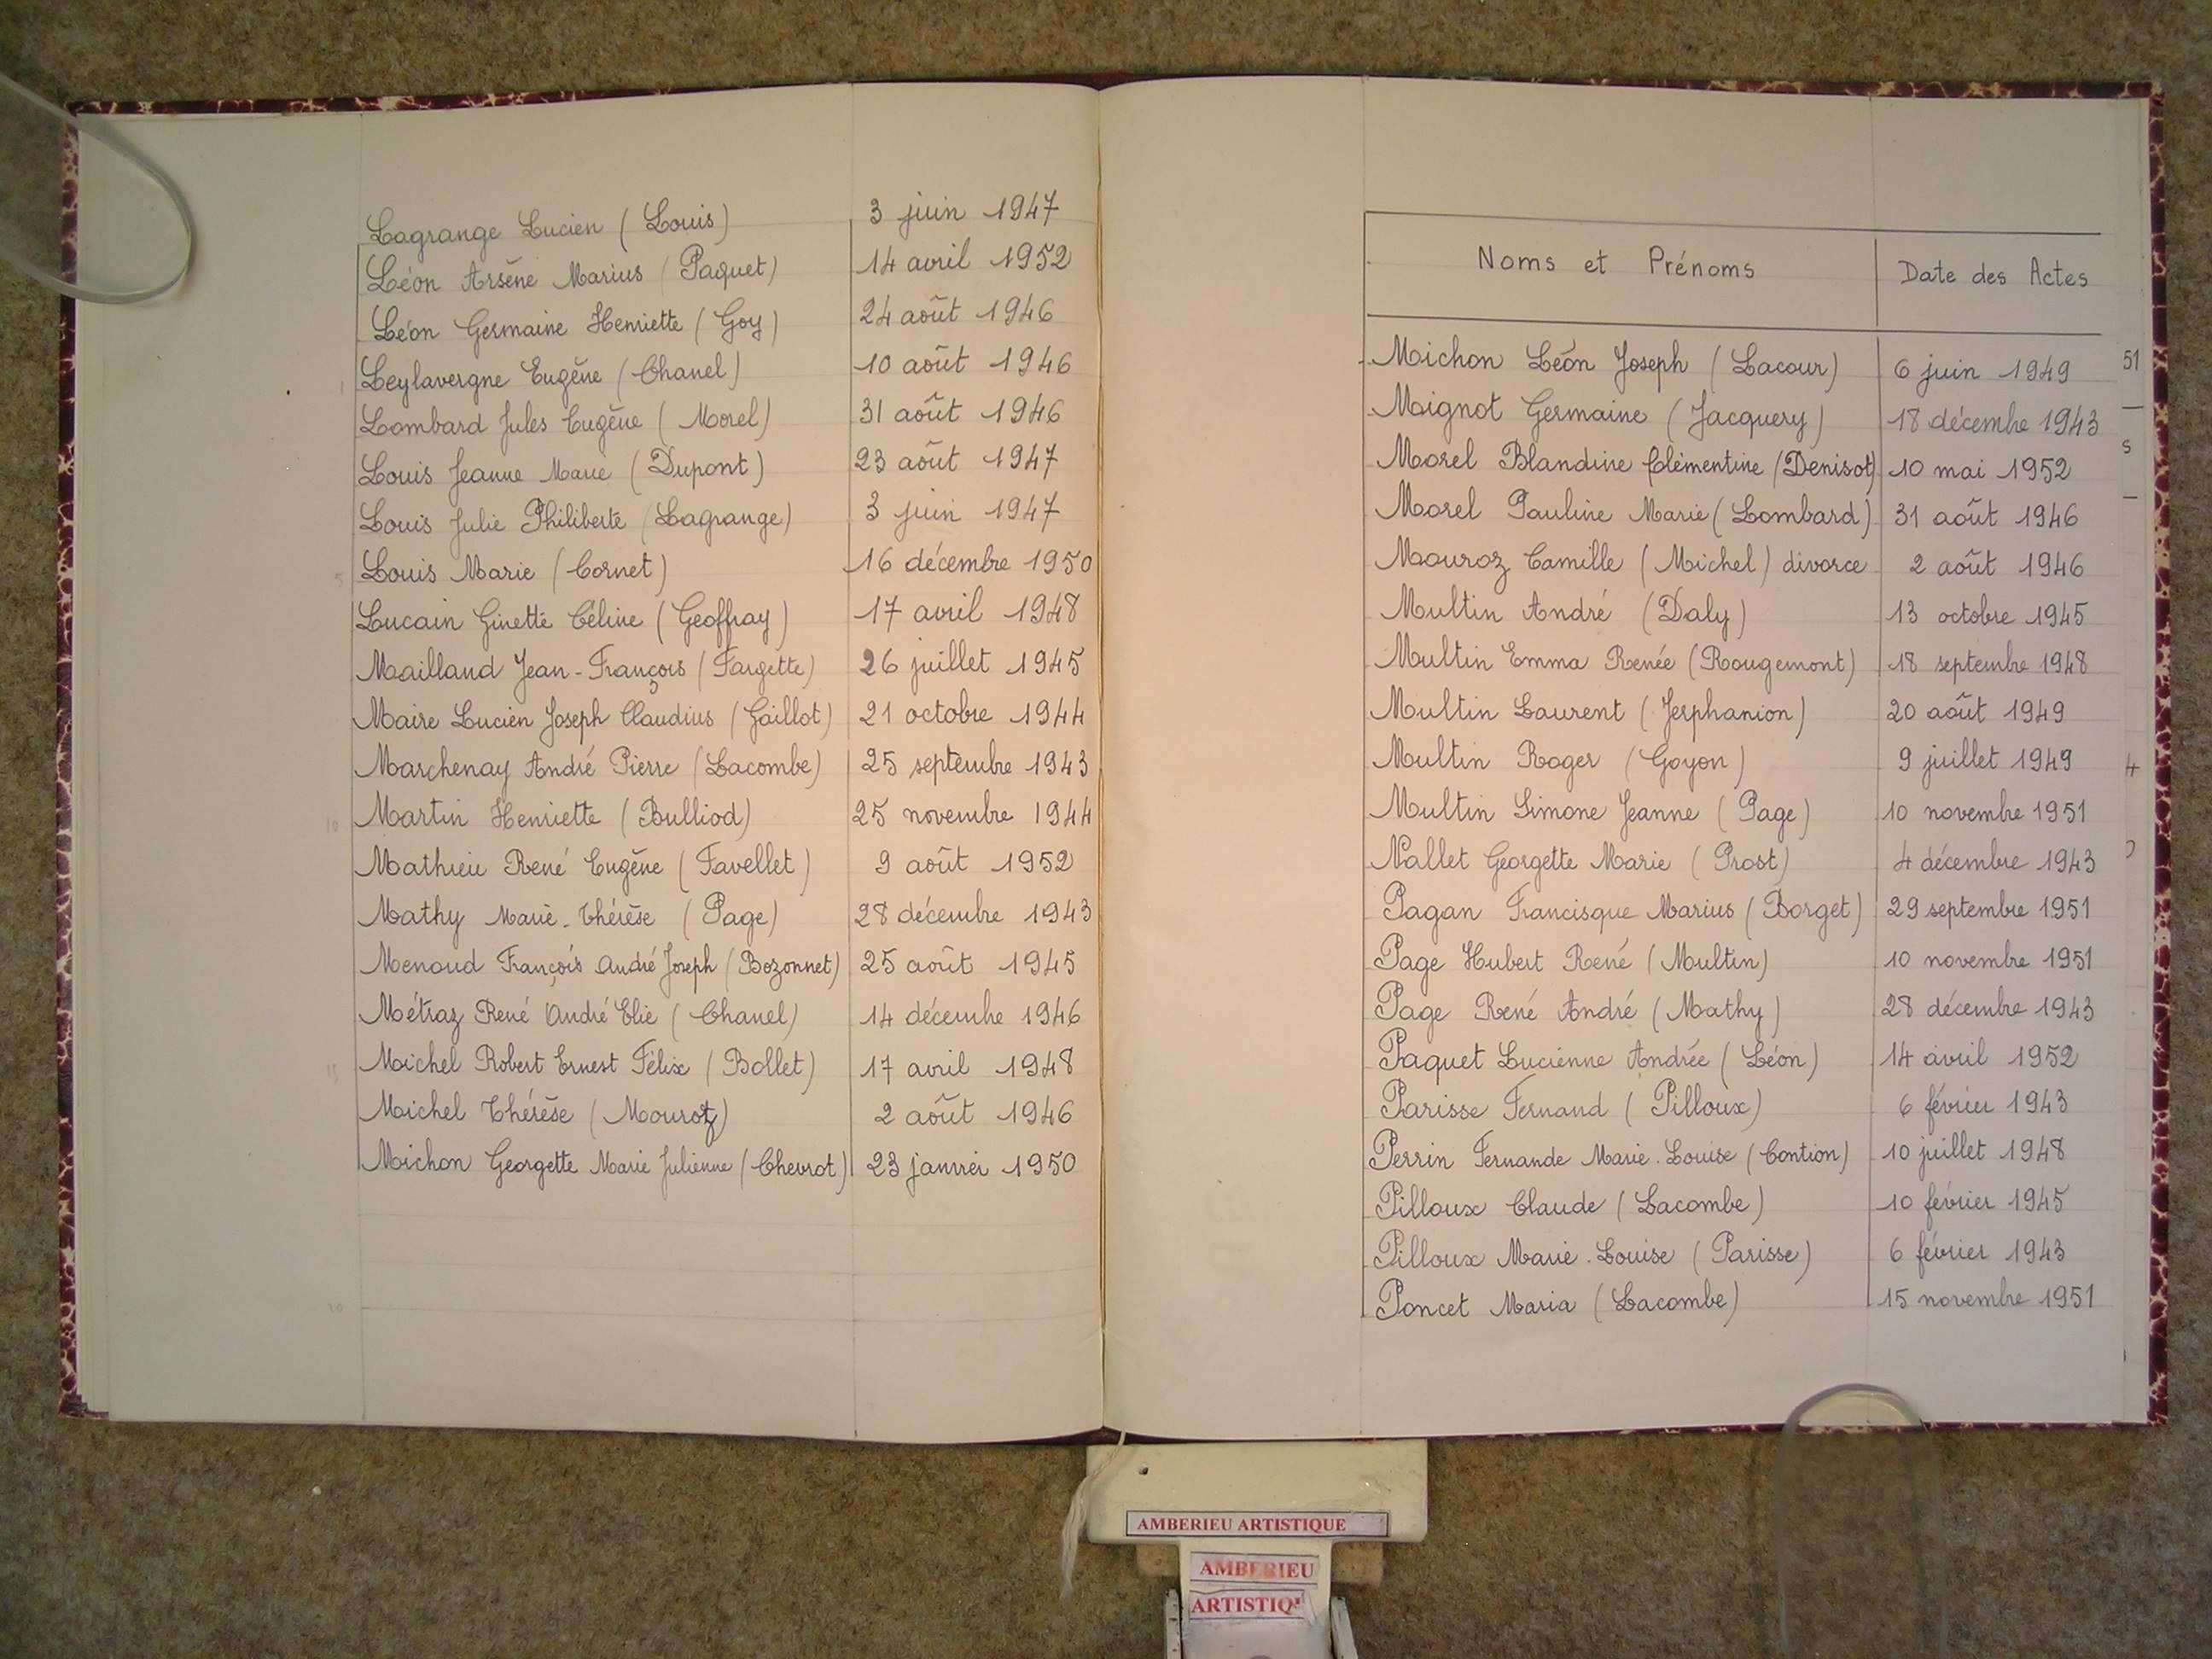 Lagrange Lucien (Louis) 3 juin 1947
Léon Arsène Marius (Paquet) 14 avril 1952
Léon Germaine Henriette (Goy) 24 août 1946
Leylavergne Eugène (Chanel) 10 août 1946
Lombard Jules Eugène (Morel) 31 août 1946
Louis Jeanne Marie (Dupont) 23 août 1947
Louis Julie Philiberte (Lagrange) 3 juin 1947
Louis Marie (Cornet) 16 décembre 1950
Lucain Ginette Céline (Geoffray) 17 avril 1948
Mailland Jean-François (Fargette) 26 juillet 1945
Maire Lucien Joseph Claudius (Gaillot) 21 octobre 1944
Marchenay André Pierre (Lacombe) 25 septembre 1943
Martin Henriette (Bulliod) 25 novembre 1944
Mathieu René Eugène (Favellet) 9 août 1952
Mathy Marie-Thérèse (Page) 28 décembre 1943
Menoud François André Joseph (Bozonnet) 25 août 1945
Métraz René André Elie (Chanel) 14 décembre 1946
Michel Robert Ernest Félix (Bollet) 17 avril 1948
Michel Thérèse (Mouroz) 2 août 1946
Michon Georgette Marie Julienne (Chevrot) 23 janvier 1950
Noms et Prénoms Date des Actes
Michon Léon Joseph (Lacour) 6 juin 1949
Mignot Germaine (Jacquery) 18 décembre 1943
Morel Blandine Clémentine (Denisot) 10 mai 1952
Morel Pauline Marie (Lombard) 31 août 1946
Mouroz Camille (Michel) divorce 2 août 1946
Multin André (Daly) 13 octobre 1945
Multin Emma Renée (Rougemont) 18 septembre 1948
Multin Laurent (Jerphanion) 20 août 1949
Multin Roger (Goyon) 9 juillet 1949
Multin Simone Jeanne (Page) 10 novembre 1951
Nallet Georgette Marie (Prost) 4 décembre 1943
Pagan Francisque Marius (Borget) 29 septembre 1951
Page Hubert René (Multin) 10 novembre 1951
Page René André (Mathy) 28 décembre 1943
Paquet Lucienne Andrée (Léon) 14 avril 1952
Parisse Fernand (Pilloux) 6 février 1943
Perrin Fernande Marie-Louise (Contion) 10 juillet 1948
Pilloux Claude (Lacombe) 10 février 1945
Pilloux Marie-Louise (Parisse) 6 février 1943
Poncet Maria (Lacombe) 15 novembre 1951
51
AMBERIEU ARTISTIQUE
AMBERIEU